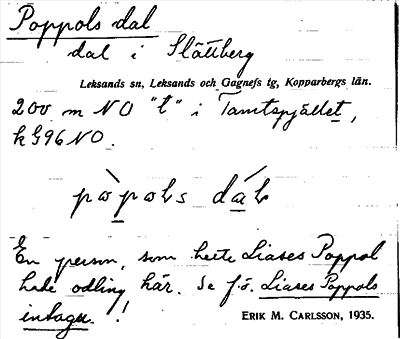 Poppols dal
dal i Slättberg
Leksands sn, Leksands och Gagnefs tg, Kopparbergs län.
200 m NO "t" i Tamtspjället,
k G96 NO.
En person, som hette Liases Poppol
hade odling här. Se f.ö. Liases Poppols
intaga. !
ERIK M. CARLSSON, 1935.